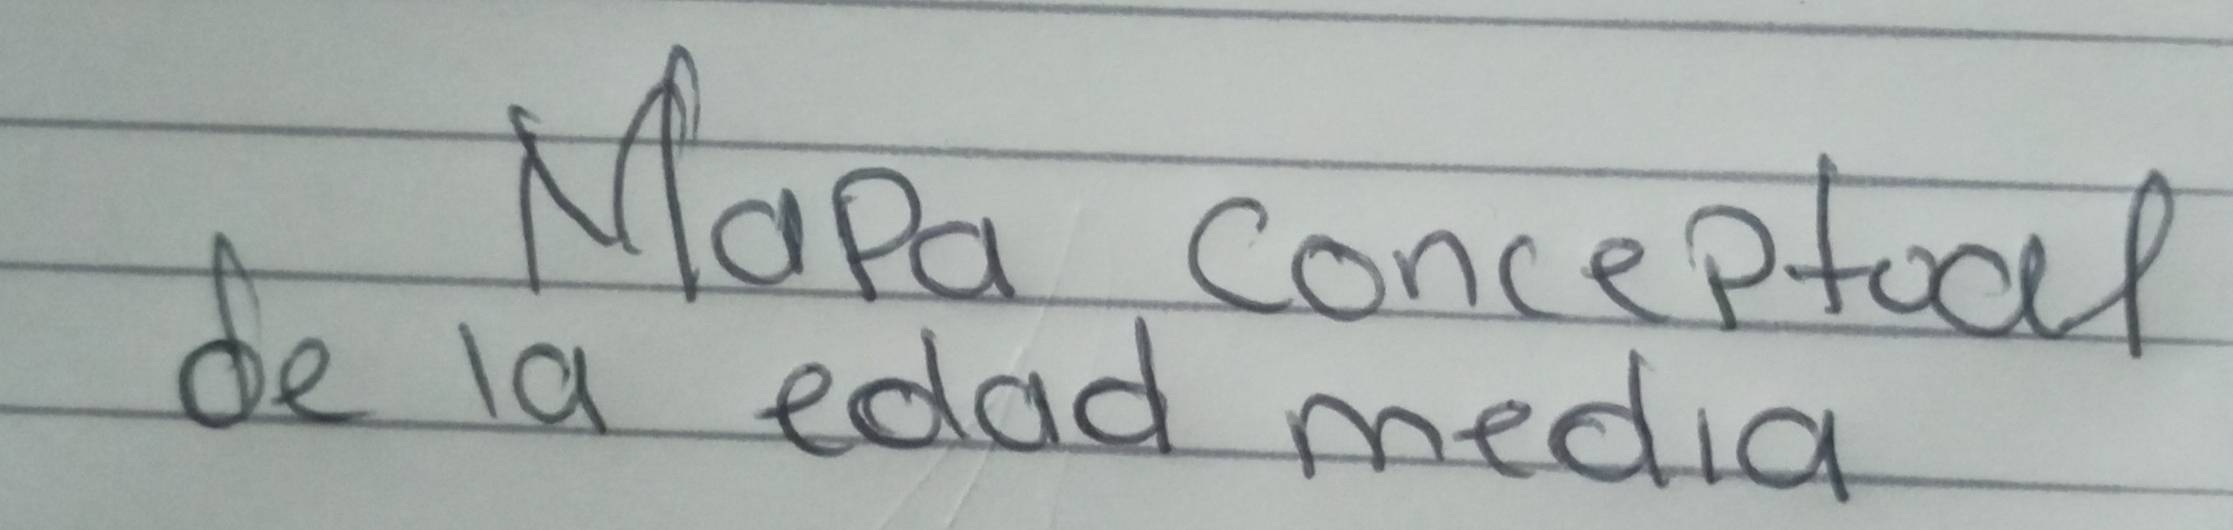 Mapa conceptual
de la edad media